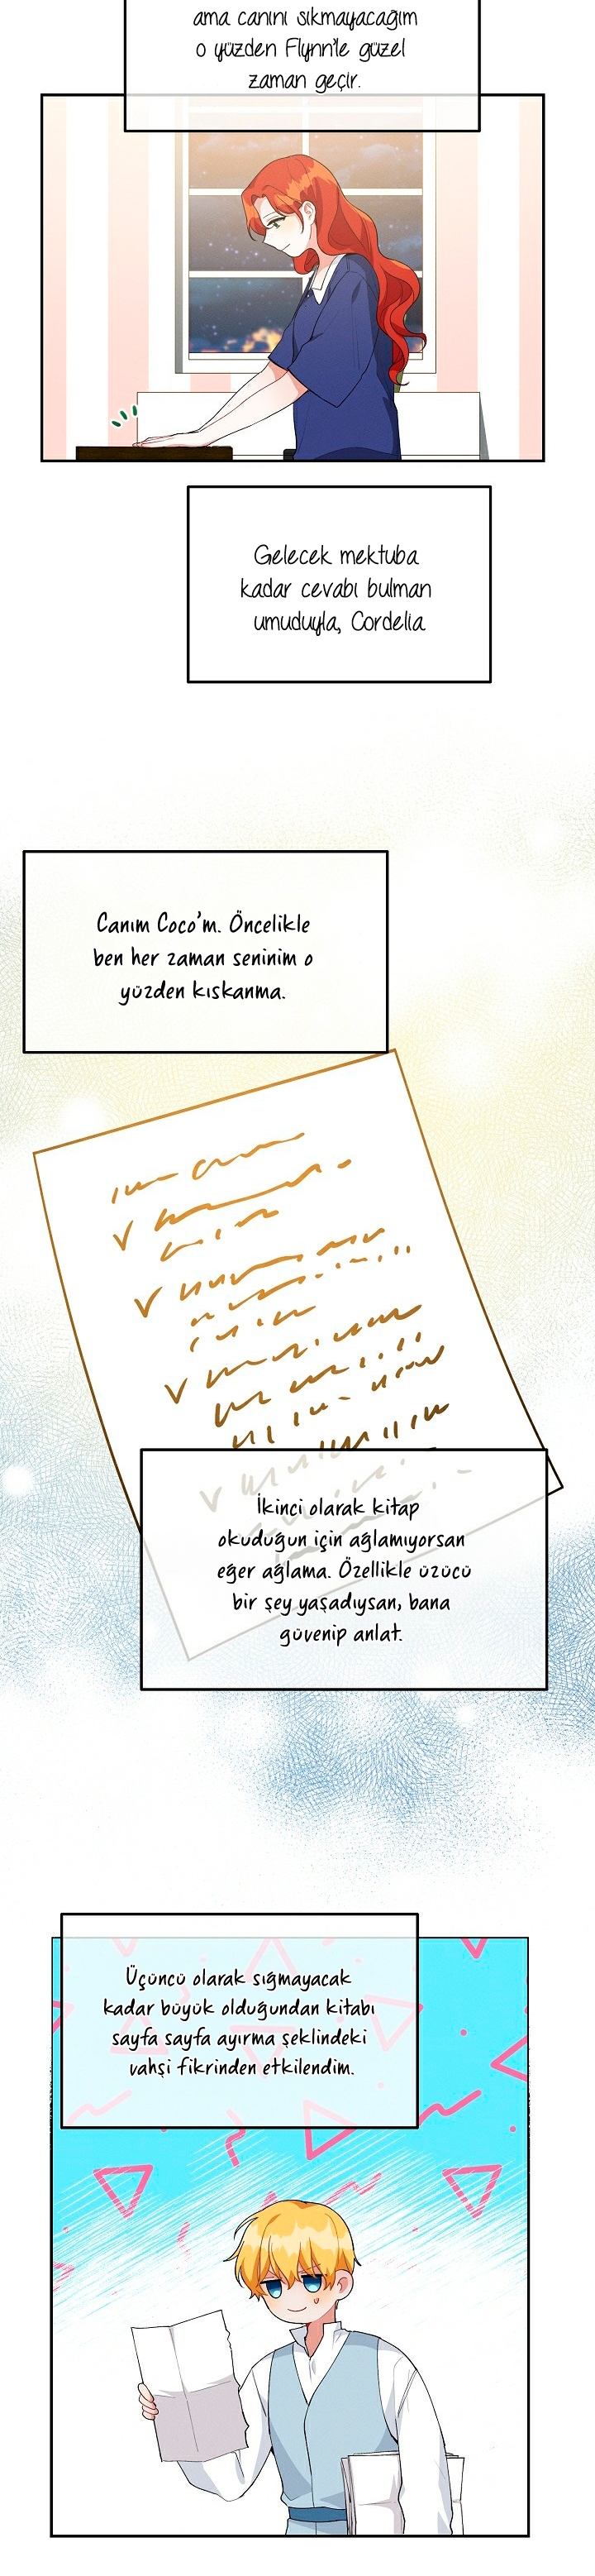 ama canını sıkmayacağım
o yüzden Flynn'le güzel
zaman geçir.
Gelecek mektuba
kadar cevabı bulman
umuduyla, Cordelia
Canım Coco'm. Öncelikle
ben her zaman seninim o
yüzden kıskanma.
İkinci olarak kitap
okuduğun için ağlamıyorsan
eğer ağlama. Özellikle üzücü
bir şey yaşadıysan, bana
güvenip anlat.
Üçüncü olarak sığmayacak
kadar büyük olduğundan kitabı
sayfa sayfa ayırma şeklindeki
vahşi fikrinden etkilendim.